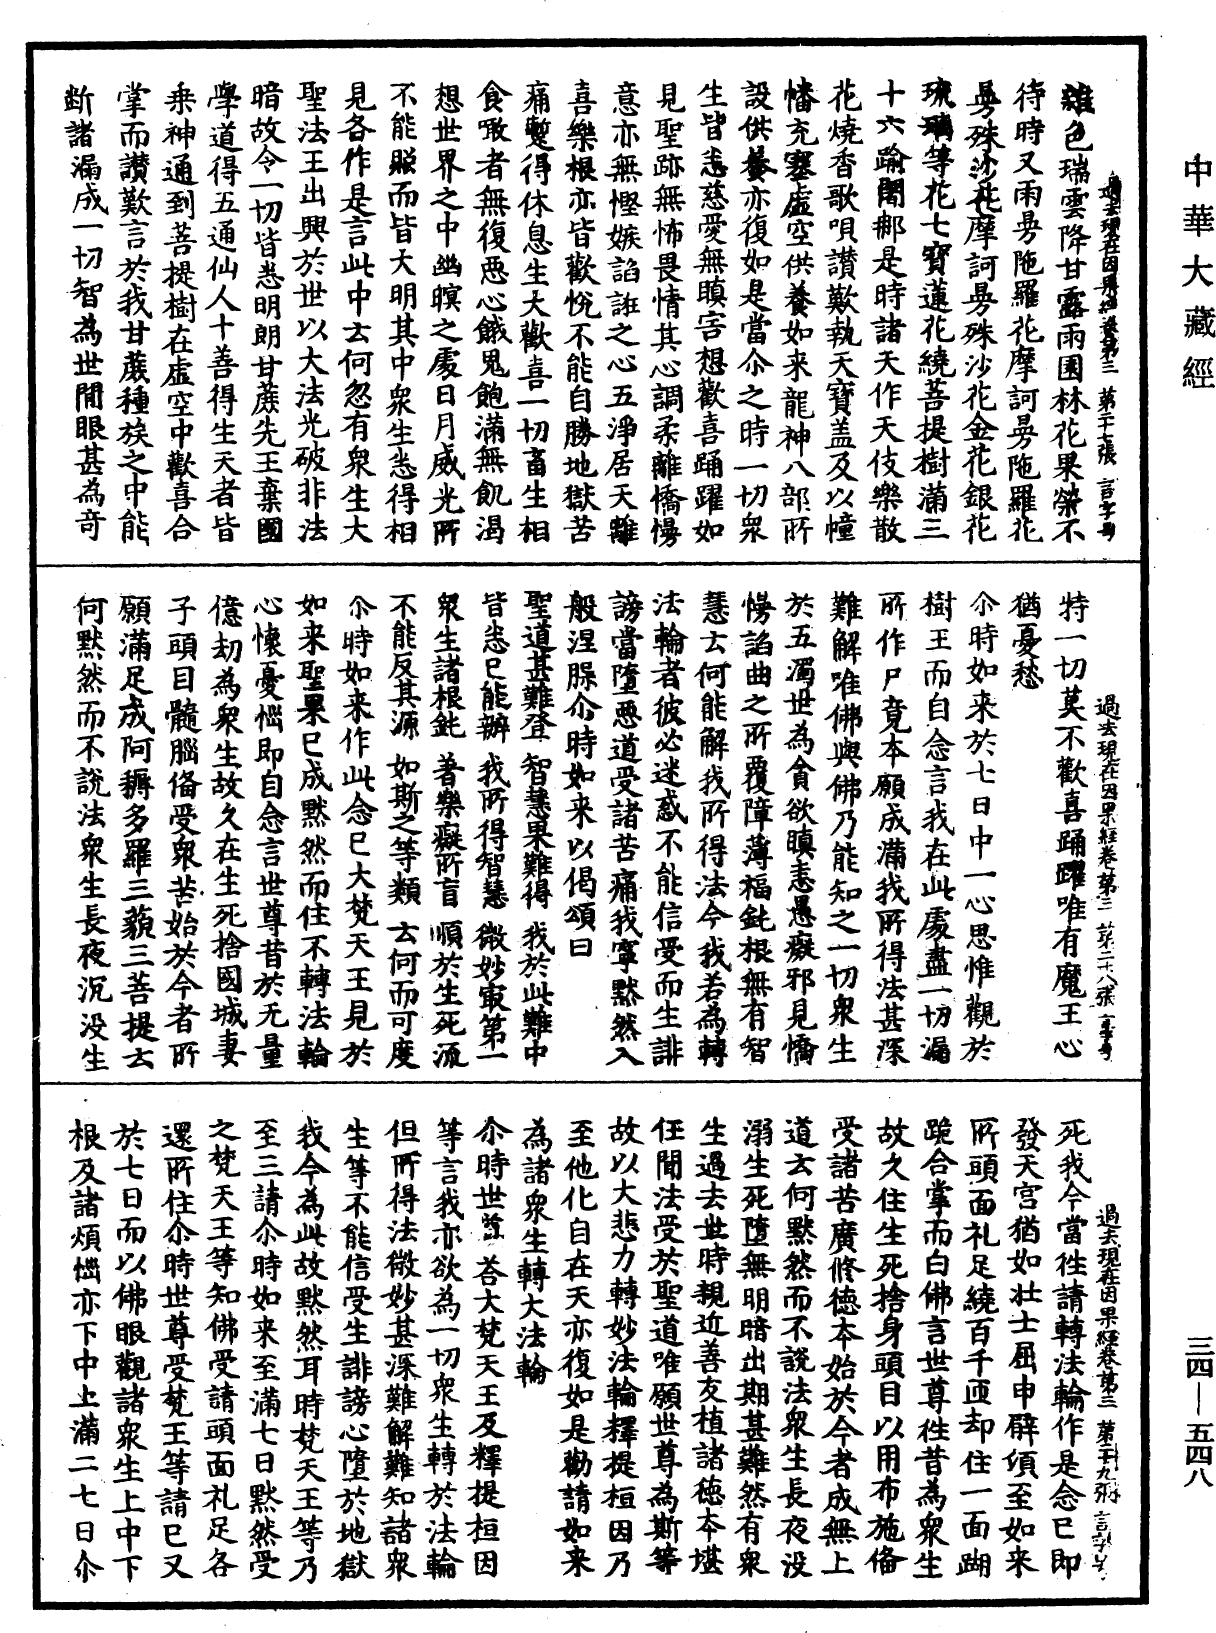 中華大藏經
過去現在因果經卷第三 第二十七張 言字号
雜色瑞雲降甘露雨園林花果榮不
待時又雨㬅陁羅花摩訶㬅陁羅花
㬅殊沙花摩訶㬅殊沙花金花銀花
琉璃等花七寶蓮花繞菩提樹滿三
十六踰闍那是時諸天作天伎樂散
花燒香歌唄讃歎執天寶盖及以幢
幡充塞虛空供養如来龍神八部所
設供養亦復如是當尒之時一切衆
生皆悉慈愛無瞋害想歡喜踊躍如
見聖跡無怖畏情其心調柔離憍慢
意亦無慳嫉諂誑之心五淨居天離
喜樂根亦皆歡悅不能自勝地獄苦
痛蹔得休息生大歡喜一切畜生相
食噉者無復惡心餓鬼飽滿無飢渴
想世界之中幽暝之處日月威光所
不能照而皆大明其中衆生悉得相
見各作是言此中云何忽有衆生大
聖法王出興於世以大法光破非法
暗故令一切皆悉明朗甘蔗先王棄國
學道得五通仙人十善得生天者皆
乘神通到菩提樹在虛空中歡喜合
掌而讃歎言於我甘蔗種族之中能
斷諸漏成一切智為世間眼甚為奇
過去現在因果經卷第三 第二十八張 言字号
特一切莫不歡喜踊躍唯有魔王心
猶憂愁
尒時如来於七日中一心思惟觀於
樹王而自念言我在此處盡一切漏
所作已竟本願成滿我所得法甚深
難解唯佛與佛乃能知之一切衆生
於五濁世為貪欲瞋恚愚癡邪見憍
慢諂曲之所覆障薄福鈍根無有智
慧云何能解我所得法今我若為轉
法輪者彼必迷惑不能信受而生誹
謗當墮惡道受諸苦痛我寧默然入
般涅槃尒時如来以偈頌曰
聖道甚難登 智慧果難得 我於此難中
皆悉已能辦 我所得智慧 微妙㝡第一
衆生諸根鈍 著樂癡所盲 順於生死流
不能反其源 如斯之等類 云何而可度
尒時如来作此念已大梵天王見於
如来聖果已成默然而住不轉法輪
心懷憂惱即自念言世尊昔於无量
億劫為衆生故久在生死捨國城妻
子頭目髓腦俻受衆苦始於今者所
願滿足成阿耨多羅三藐三菩提云
何默然而不說法衆生長夜沉沒生
過去現在因果經卷第三 第二十九張 言字号
死我今當往請轉法輪作是念已即
發天宮猶如壯士屈申臂頃至如来
所頭面礼足繞百千匝却住一面𠙖
跪合掌而白佛言世尊往昔為衆生
故久住生死捨身頭目以用布施俻
受諸苦廣修德本始於今者成無上
道云何默然而不說法衆生長夜没
溺生死墮無明暗出期甚難然有衆
生過去世時親近善友植諸德本堪
任聞法受於聖道唯願世尊為斯等
故以大悲力轉妙法輪釋提桓因乃
至他化自在天亦復如是勸請如来
為諸衆生轉大法輪
尒時世尊荅大梵天王及釋提桓因
等言我亦欲為一切衆生轉於法輪
但所得法微妙甚深難解難知諸衆
生等不能信受生誹謗心墮於地獄
我今為此故默然耳時梵天王等乃
至三請尒時如来至滿七日默然受
之梵天王等知佛受請頭面礼足各
還所住尒時世尊受梵王等請已又
於七日而以佛眼觀諸衆生上中下
根及諸煩惱亦下中上滿二七日尒
三四—五四八